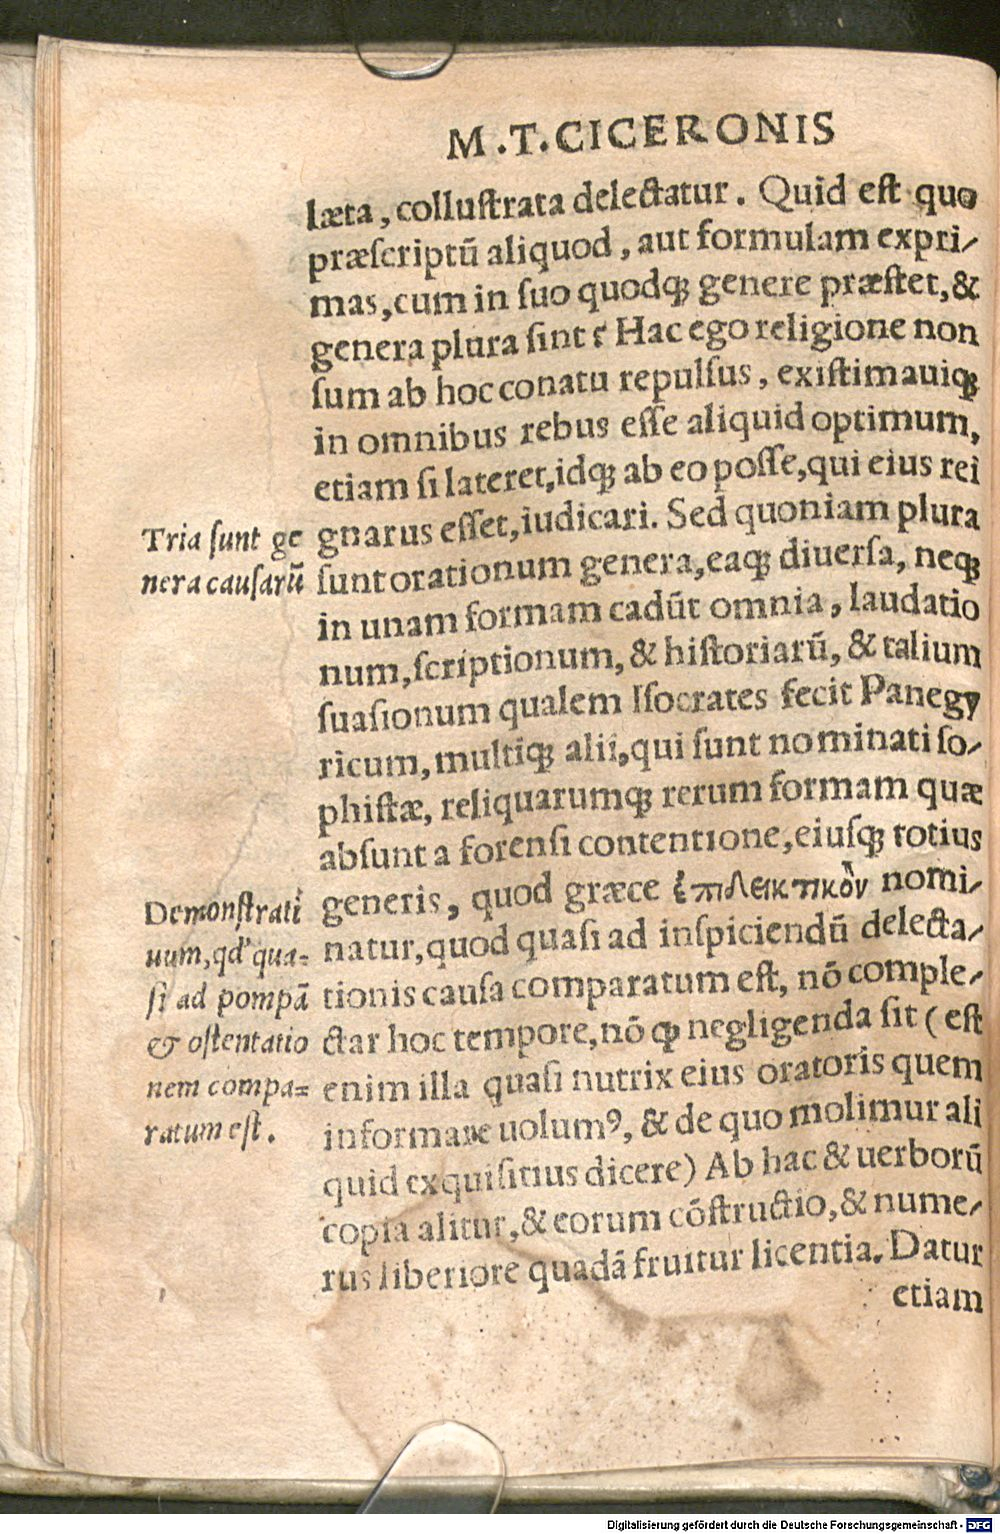 M.T.CICERONIS
læta, collustrata delectatur. Quid est quo
præscriptū aliquod, aut formulam expri⸗
mas, cum in suo quodq; genere præstet, &
genera plura sint? Hac ego religione non
sum ab hoc conatu repulsus, existimauiq;
in omnibus rebus esse aliquid optimum,
etiam si lateret, idq; ab eo posse, qui eius rei
gnarus esset, iudicari. Sed quoniam plura
sunt orationum genera, eaq; diuersa, neq;
in unam formam cadūt omnia, laudatio
num, scriptionum, & historiarū, & talium
suasionum qualem Isocrates fecit Panegy
ricum, multiq; alii, qui sunt nominati so⸗
phistæ, reliquarumq; rerum formam quæ
absunt a forensi contentione, eiusq; totius
generis, quod græce ἐπιδεικτικὸν nomi⸗
natur, quod quasi ad inspiciendū delecta⸗
tionis causa comparatum est, nō comple⸗
ctar hoc tempore, nō ꝙ negligenda sit (est
enim illa quasi nutrix eius oratoris quem
informare uolumꝰ, & de quo molimur ali
quid exquisitius dicere) Ab hac & uerborū
copia alitur, & eorum cōstructio, & nume⸗
rus liberiore quadā fruitur licentia. Datur
etiam
Tria sunt ge
nera causarū
Demonstrati
uum, qd' qua⸗
si ad pompā
& ostentatio
nem compa⸗
ratum est.
Digitalisierung gefördert durch die Deutsche Forschungsgemeinschaft - DFG